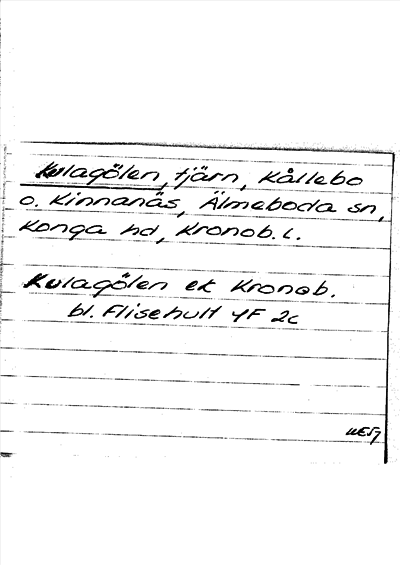 Kulagölen, tjärn, Kållebo
o. Kinnanäs, Älmeboda sn,
Konga hd, Kronob. l.
Kulagölen ek Kronob.
bl. Flisehult 4F 2c